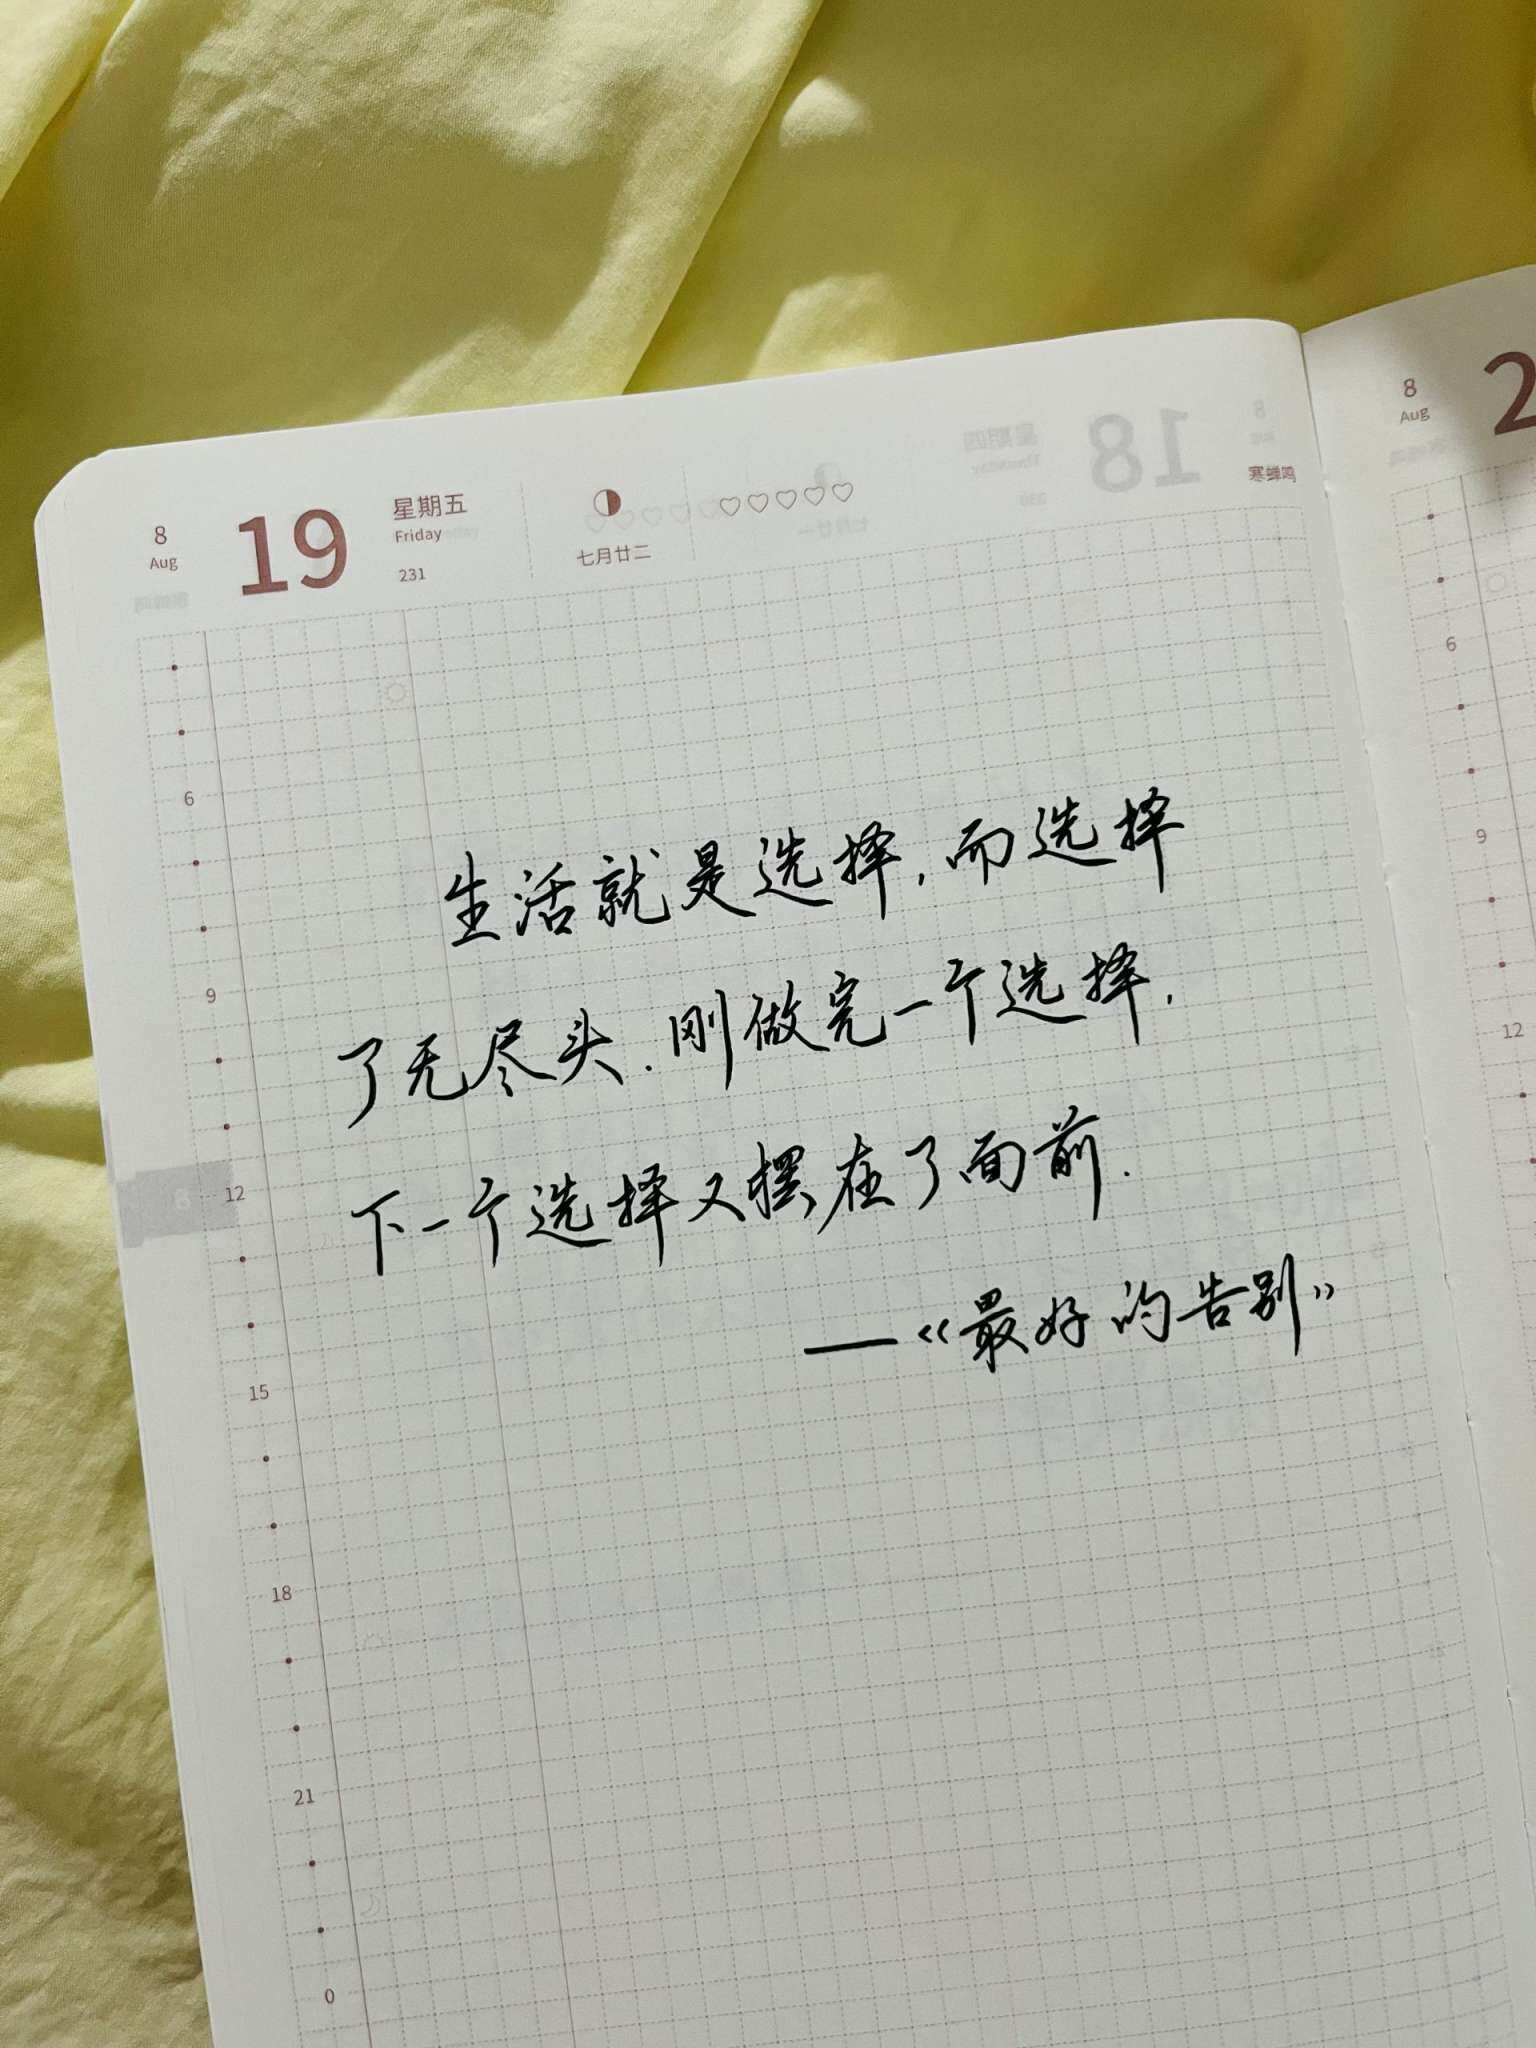 8
Aug
19
星期五
Friday
231
七月廿二
寒蝉鸣
8
Aug
2
生活就是选择，而选择
了无尽头.刚做完一个选择，
下一个选择又摆在了面前.
—《最好的告别》
6
9
12
15
18
21
0
6
9
12